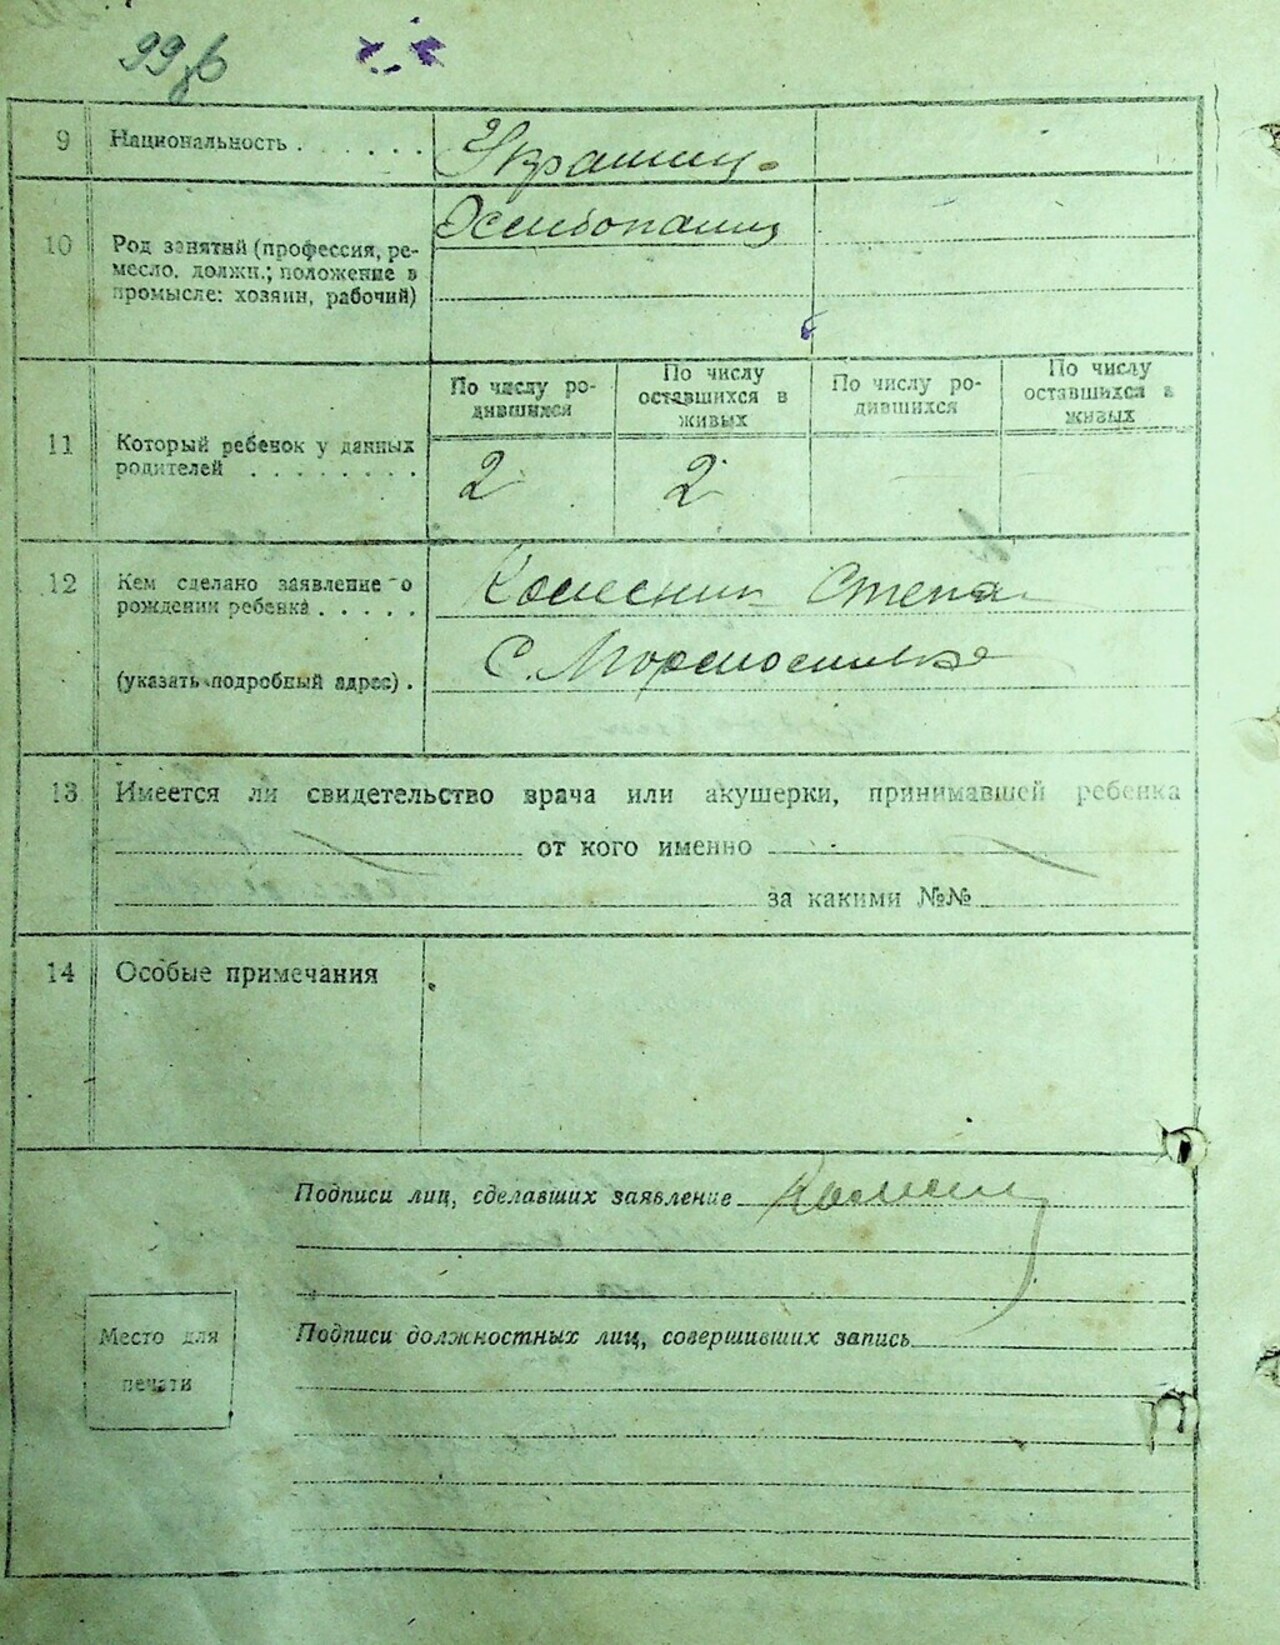 99 об
9 Национальность . . . . . . Украинц.
10 Род занятий (профессия, ре-
месло. должн.; положение в
промысле: хозяин, рабочий)
По числу ро-
дившихся
По числу
оставшихся в
живых
По числу ро-
дившихся
По числу
оставшихся в
живых
11 Который ребенок у данных
родителей . . . . . . . .
2 2
12 Кем сделано заявление о
рождении ребенка . . . . .
Колесник Степа
(указать подробный адрес) . С.
13 Имеется ли свидетельство врача или акушерки, принимавшей ребенка
от кого именно
за какими №№
14 Особые примечания
Подписи лиц, сделавших заявление
Подписи должностных лиц, совершивших запись
Место для
печати